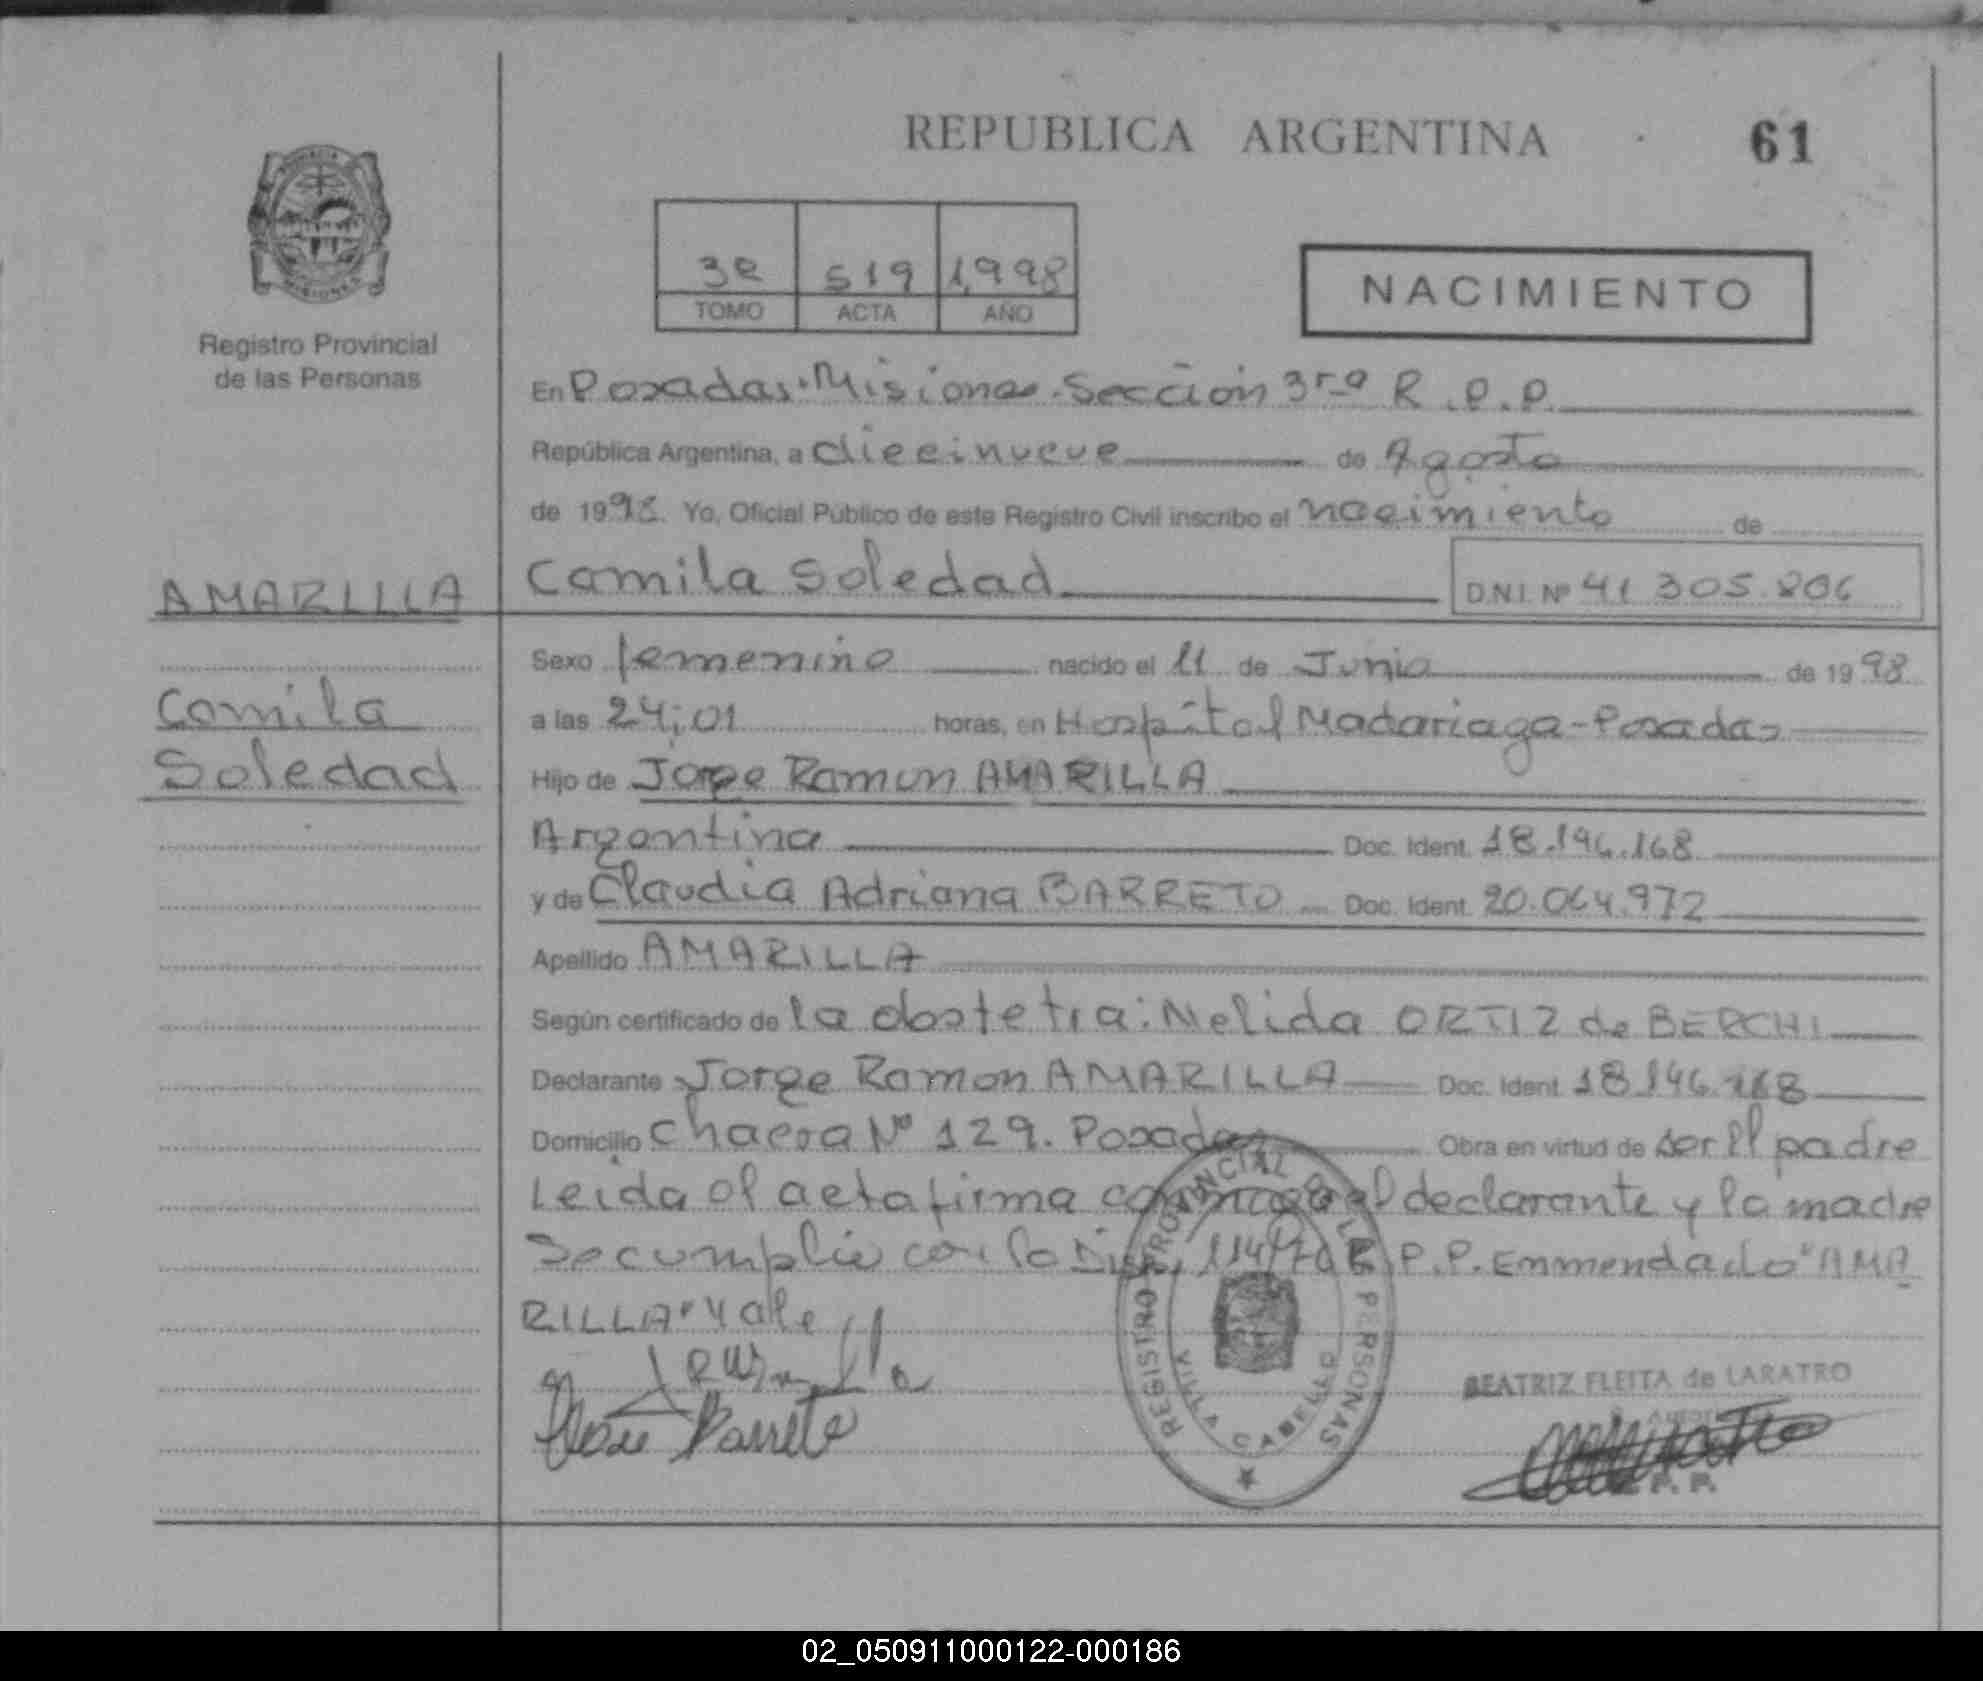 REPUBLICA ARGENTINA
61
PROVINCIA
MISIONES
Registro Provincial
de las Personas
3e 519 1,998
TOMO ACTA AÑO
NACIMIENTO
En Posadas-Misiones-Sección 3ra R.P.P.
República Argentina, a diecinueve de Agosto
de 1998. Yo, Oficial Público de este Registro Civil inscribo el nacimiento de
AMARILLA
Camila Soledad
D.N.I. Nº 41 305.806
Sexo femenino nacido el 11 de Junio de 1998
Camila
a las 24;01 horas, en Hospital Madariaga-Posadas
Soledad
Hijo de Jorge Ramon AMARILLA
Argentina Doc. Ident. 18.146.168
y de Claudia Adriana BARRETO Doc. Ident. 20.064.972
Apellido AMARILLA
Según certificado de la obstetra: Nelida ORTIZ de BERCHI
Declarante Jorge Ramon AMARILLA Doc. Ident. 18.146.168
Domicilio Chacra Nº 129. Posadas Obra en virtud de ser el padre
Leida el acta firma conmigo el declarante y la madre
Se cumplió con la Disp. 114/70 R.P.P. Emmendado "AMA
RILLA" Vale
REGISTRO PROVINCIAL DE LAS PERSONAS
VILLA CABELLO
BEATRIZ FLEITA de LARATRO
Barreto
02_050911000122-000186